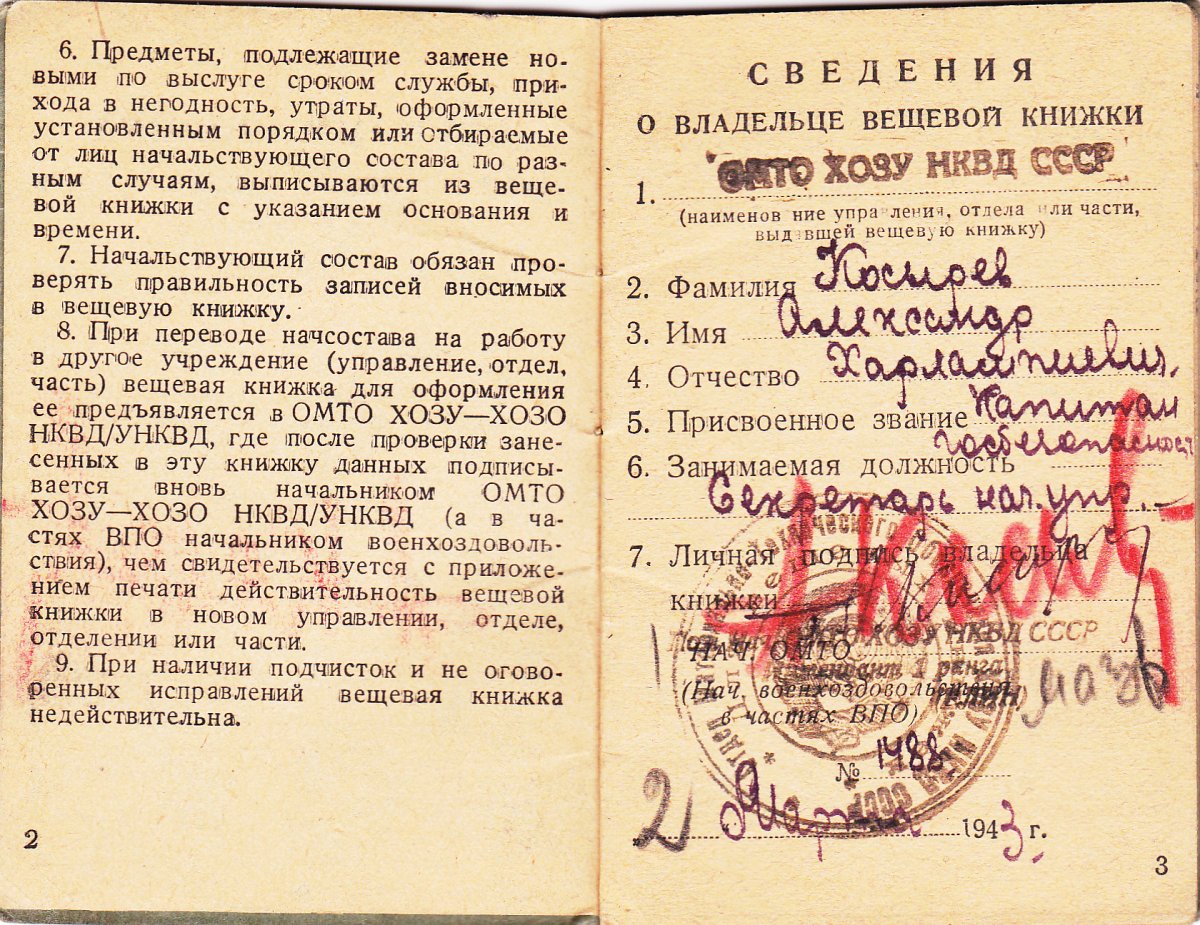 6. Предметы, подлежащие замене но-
выми по выслуге сроком службы, при-
хода в негодность, утраты, оформленные
установленным порядком или отбираемые
от лиц начальствующего состава по раз-
ным случаям, выписываются из веще-
вой книжки с указанием основания и
времени.
7. Начальствующий состав обязан про-
верять правильность записей вносимых
в вещевую книжку.
8. При переводе начсостава на работу
в другое учреждение (управление, отдел,
часть) вещевая книжка для оформления
ее предъявляется в ОМТО ХОЗУ—ХОЗО
НКВД/УНКВД, где после проверки зане-
сенных в эту книжку данных подписы-
вается вновь начальником ОМТО
ХОЗУ—ХОЗО НКВД/УНКВД (а в ча-
стях ВПО начальником военхоздоволь-
ствия), чем свидетельствуется с приложе-
нием печати действительность вещевой
книжки в новом управлении, отделе,
отделении или части.
9. При наличии подчисток и не огово-
ренных исправлений вещевая книжка
недействительна.
2
СВЕДЕНИЯ
О ВЛАДЕЛЬЦЕ ВЕЩЕВОЙ КНИЖКИ
1. ОМТО ХОЗУ НКВД СССР
(наименов ние управления, отдела или части,
выдавшей вещевую книжку)
2. Фамилия Косырев
3. Имя Александр
4. Отчество Харлампиевич.
5. Присвоенное звание Капитан
госбезопасност
6. Занимаемая должность
Секретарь нач. упр.
7. Личная подпись владельца
книжки
ОМТО ХОЗУ НКВД СССР
НАЧ. ОМТО
интендант 1 ранга
(Нач. военхоздовольствия
в частях ВПО)
№ 1488
2 Марта 1943 г.
3